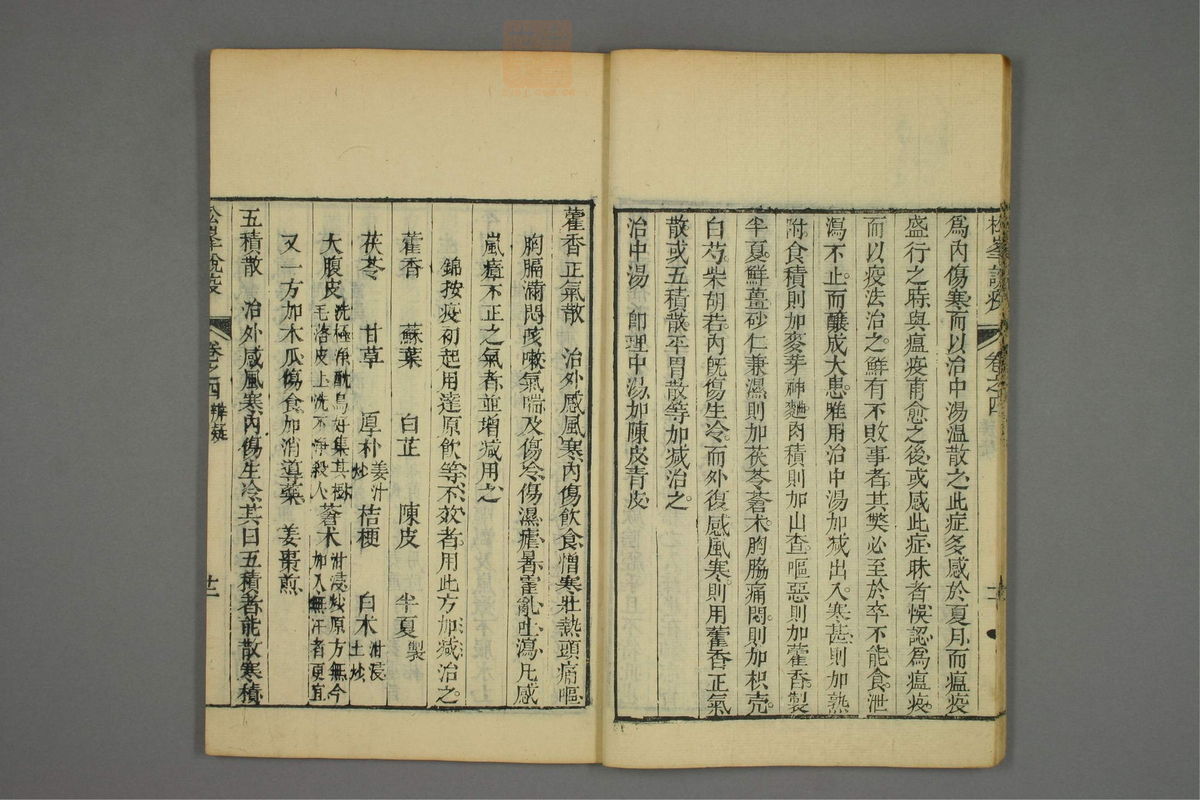 松峯說疫 卷之四
爲內傷寒而以治中湯溫散之此症多感於夏月而瘟疫
盛行之時與瘟疫甫愈之後或感此症昧者悞認爲瘟疫
而以疫法治之鮮有不敗事者其獘必至於卒不能食泄
瀉不止而釀成大患雖用治中湯加減出入寒甚則加熟
附食積則加麥芽神麯肉積則加山查嘔惡則加藿香製
半夏鮮薑砂仁兼濕則加茯苓蒼朮胸脇痛悶則加枳壳
白芍柴胡若內旣傷生冷而外復感風寒則用藿香正氣
散或五積散平胃散等加減治之
治中湯 卽理中湯加陳皮青皮
藿香正氣散 治外感風寒內傷飲食憎寒壯熱頭痛嘔
胸膈滿悶咳嗽氣喘及傷冷傷濕瘧暑霍亂吐瀉凡感
嵐瘴不正之氣者並增減用之
錦按疫初起用達原飲等不效者用此方加減治之
藿香 蘇葉 白芷 陳皮 半夏製
茯苓 甘草 厚朴姜汁炒 桔梗 白朮泔浸土炒
大腹皮洗極淨酖鳥好集其樹毛落皮上洗不淨殺人 蒼朮泔浸炒原方無今加入無汗者更宜
又一方加木瓜傷食加消導藥 姜棗煎
五積散 治外感風寒內傷生冷其曰五積者能散寒積
松峯說疫 卷之四 辨疑 廿二